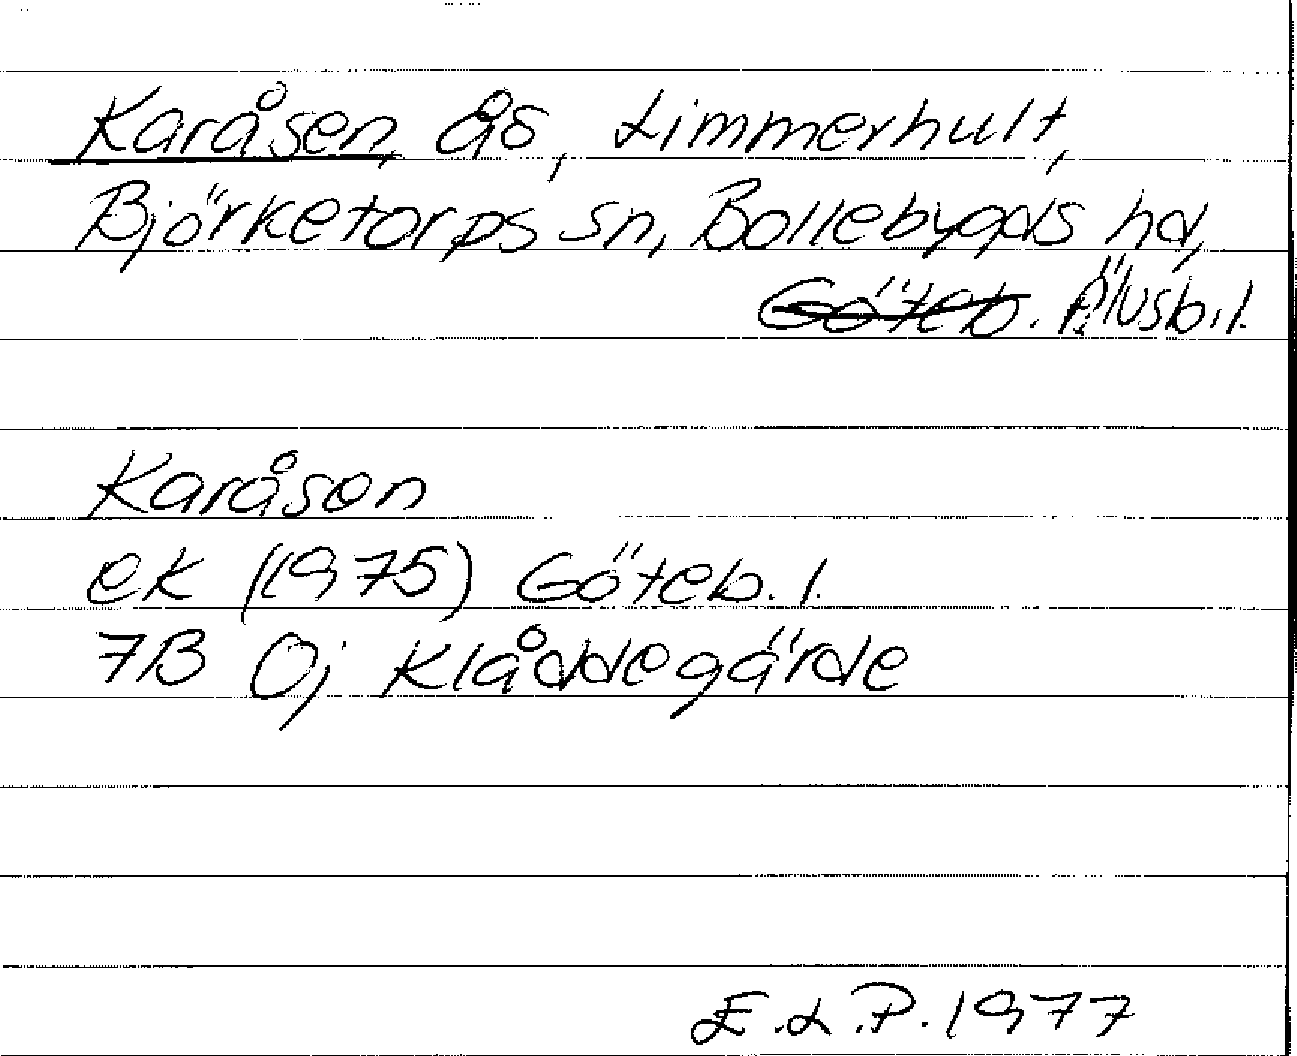 Karåsen, ås, Limmerhult,
Björketorps sn, Bollebygds hd,
Göteb. Älvsb.l.
Karåsen
ek (1975) Göteb. l.
7B 0j Klåddegärde
E.L.P. 1977